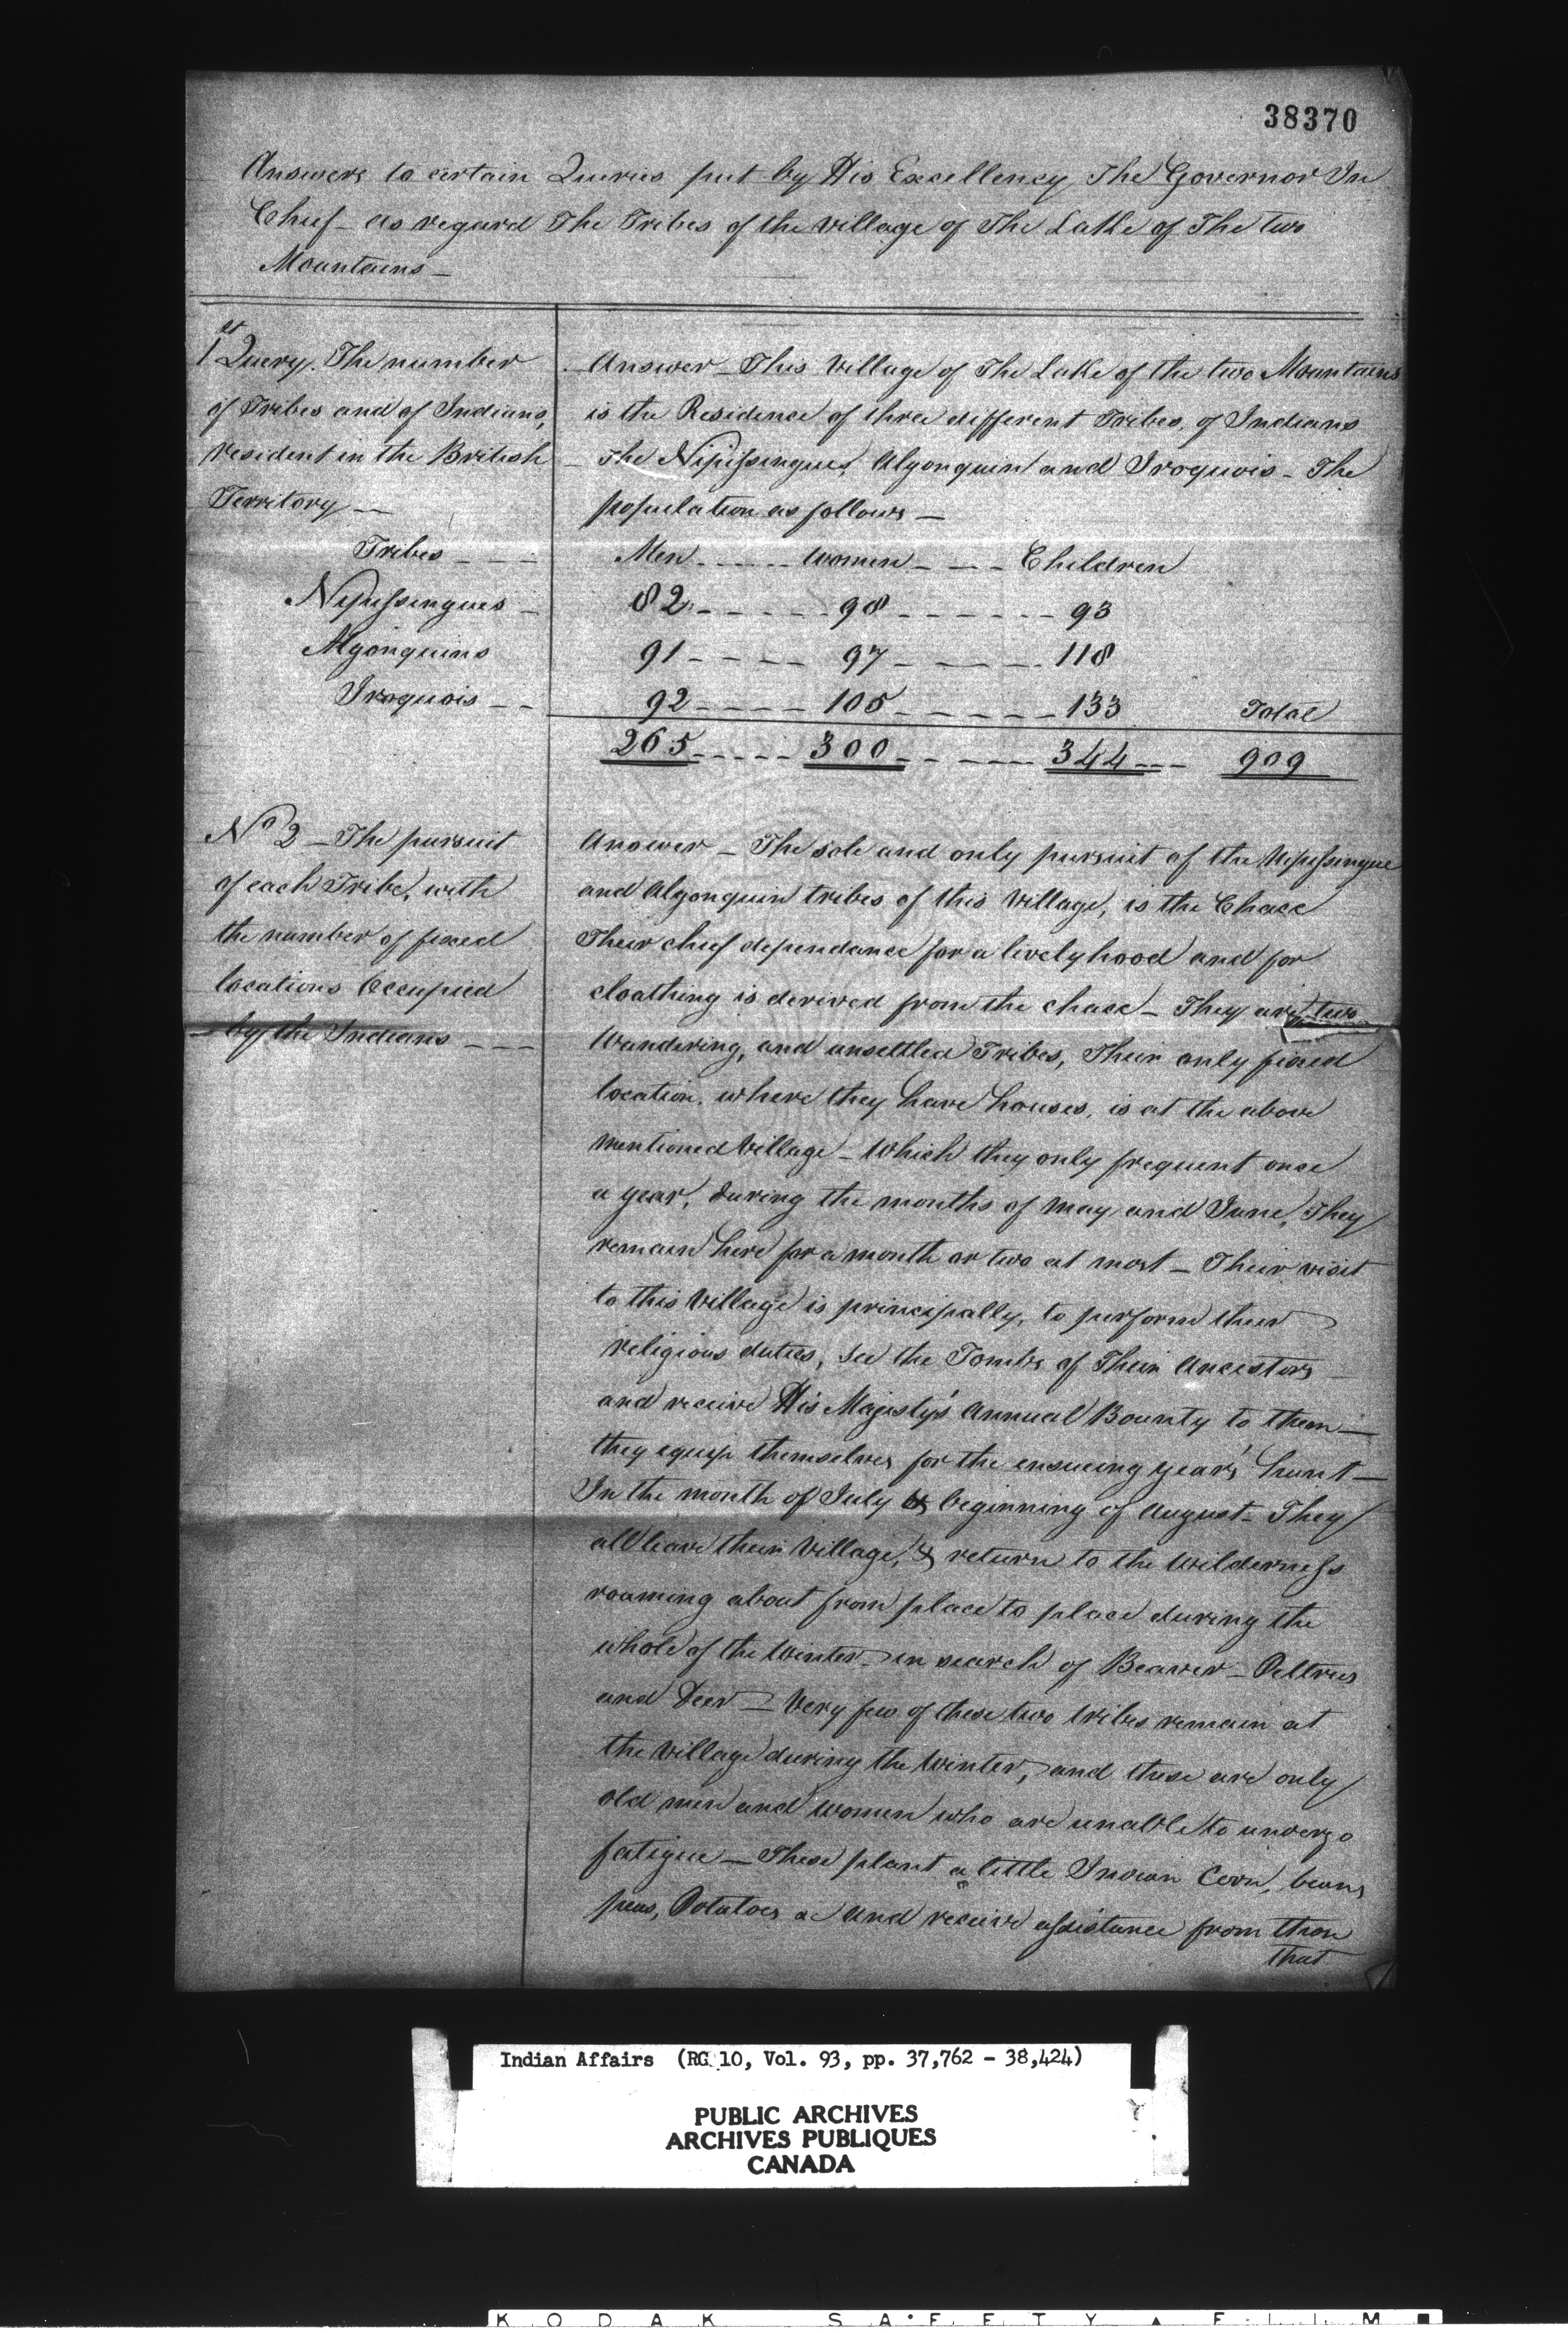 38370
Answers to certain Queries put by His Excellency The Governor In
Chief - as regard The Tribes of the village of The Lake of The two
Mountains -
1st Query. The number
of Tribes and of Indians,
resident in the British
Territory -
Answer - This Village of The Lake of the two Mountains
is the Residence of three different Tribes, of Indians
- The Nipissingues, Algonquin and Iroquois - The
population as follows -
Tribes - - - Men - - - - - Women - - - - Children
Nipissingues - 82 - - - - - 98 - - - - - - - 93
Algonquins 91 - - - - 97 - - - - - 118
Iroquois - - 92 - - - - 105 - - - - - - 133 Total
265 - - - - - 300 - - - - - - 344 - - - 909
No 2 - The pursuit
of each Tribe, with
the number of fixed
locations Occupied
by the Indians - - -
Answer - The sole and only pursuit of the Nipissingue
and Algonquin tribes of this Village, is the Chace
Their chief dependance for a livelyhood and for
cloathing is derived from the chace - They are two
Wandering, and unsettled Tribes, Their only fixed
location, where they have houses, is at the above
mentioned Village - Which they only frequent once
a year, during the months of May and June, They
remain here for a month or two at most - Their visit
to this Village is principally, to perform their
religious duties, see the Tombs of Their Ancestors
and receive His Majesty's Annual Bounty to them -
they equip themselves for the ensueing year's hunt -
In the month of July & beginning of August - They
all leave their Village, & return to the Wilderness
roaming about from place to place during the
whole of the Winter - in search of Beaver - Peltries
and Deer - Very few of these two tribes remain at
the Village during the Winter, and these are only
old men and women who are unable to undergo
fatigue - These plant a little Indian Corn, beans
peas, Potatoes &c and receive assistance from those
that
Indian Affairs (RG 10, Vol. 93, pp. 37,762 - 38,424)
PUBLIC ARCHIVES
ARCHIVES PUBLIQUES
CANADA
KODAK SAFETY FILM